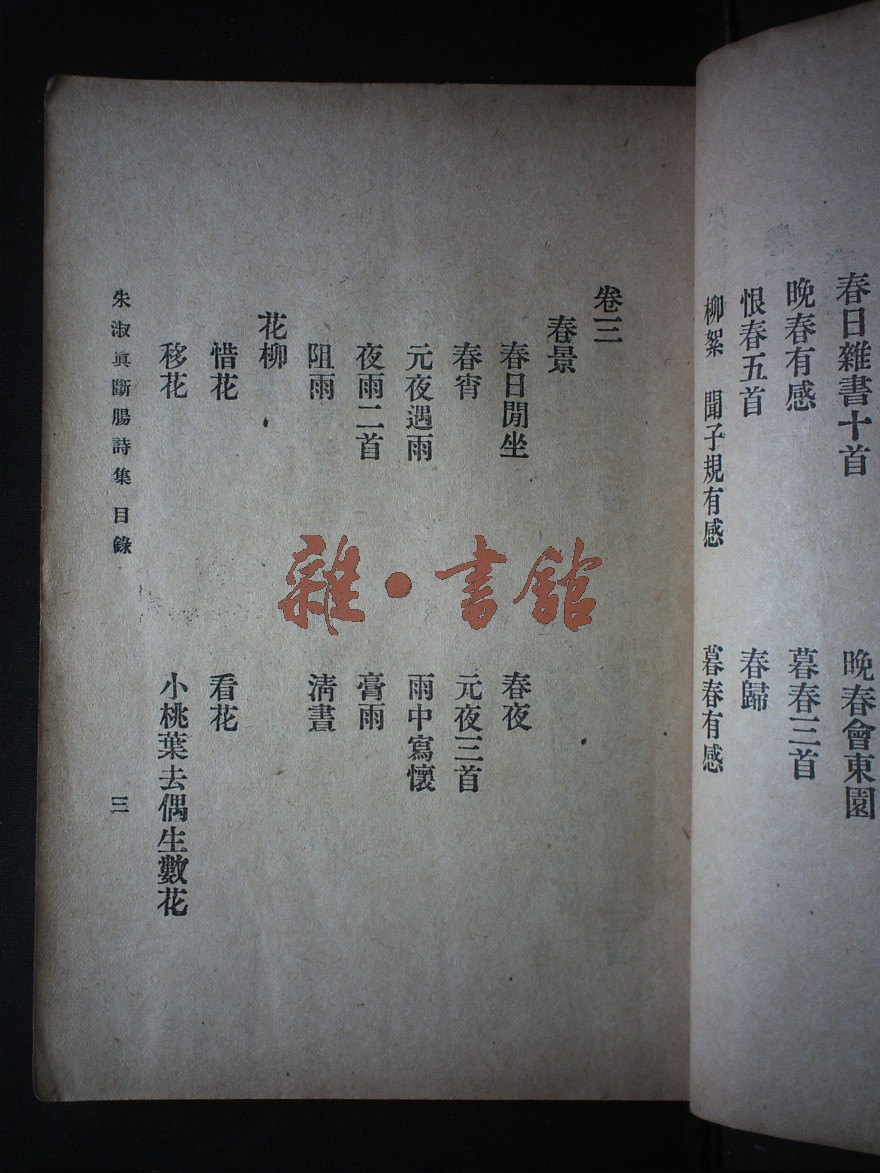 春日雜書十首　晚春會東園
晚春有感　暮春三首
恨春五首　春歸
柳絮　聞子規有感　暮春有感
卷三
春景
春日閒坐　春夜
春宵　元夜三首
元夜遇雨　雨中寫懷
夜雨二首　膏雨
阻雨　清晝
花柳
惜花　看花
移花　小桃葉去偶生數花
朱淑眞斷腸詩集　目錄　三
雜·書館